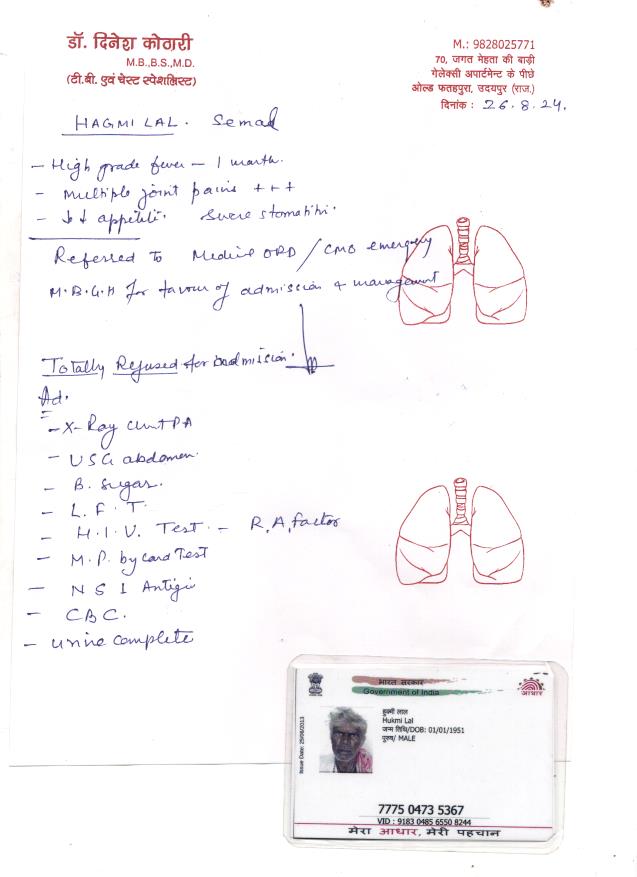 डॉ. दिनेश कोठारी
M.B.,B.S.,M.D.
(टी.बी. एवं चेस्ट स्पेशलिस्ट)
M.: 9828025771
70, जगत मेहता की बाड़ी
गेलेक्सी अपार्टमेन्ट के पीछे
ओल्ड फतहपुरा, उदयपुर (राज.)
दिनांक : 26.8.24.
HAGMI LAL. Semad
- High grade fever - 1 month.
- Multiple joint pains +++
- ↓↓ appetite. Severe stomatitis.
Referred to Medicine OPD / CMO emergency
M.B.G.H for favour of admission & management
Totally Refused for admission.
Ad.
- X-Ray chest PA
- USG abdomen.
- B. Sugar.
- L.F.T.
- H.I.V. Test. - R.A. factor
- M.P. by card Test
- NS1 Antigen
- CBC.
- Urine complete
भारत सरकार
Government of India
आधार
Issue Date: 25/06/2013
हुक्मी लाल
Hukmi Lal
जन्म तिथि/DOB: 01/01/1951
पुरुष/ MALE
7775 0473 5367
VID : 9183 0485 6550 8244
मेरा आधार, मेरी पहचान